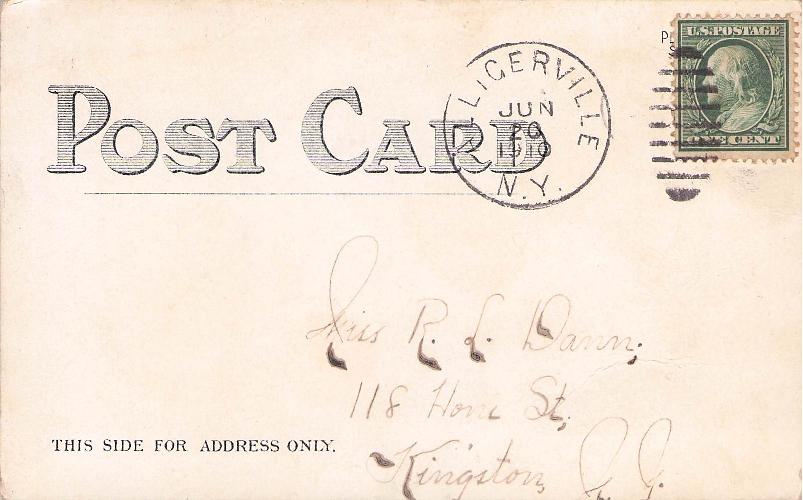 POST CARD
ALLIGERVILLE
JUN
20
1910
N.Y.
U.S. POSTAGE
ONE CENT
Miss R. L. Dann,
118 Home St,
Kingston, N. Y.
THIS SIDE FOR ADDRESS ONLY.